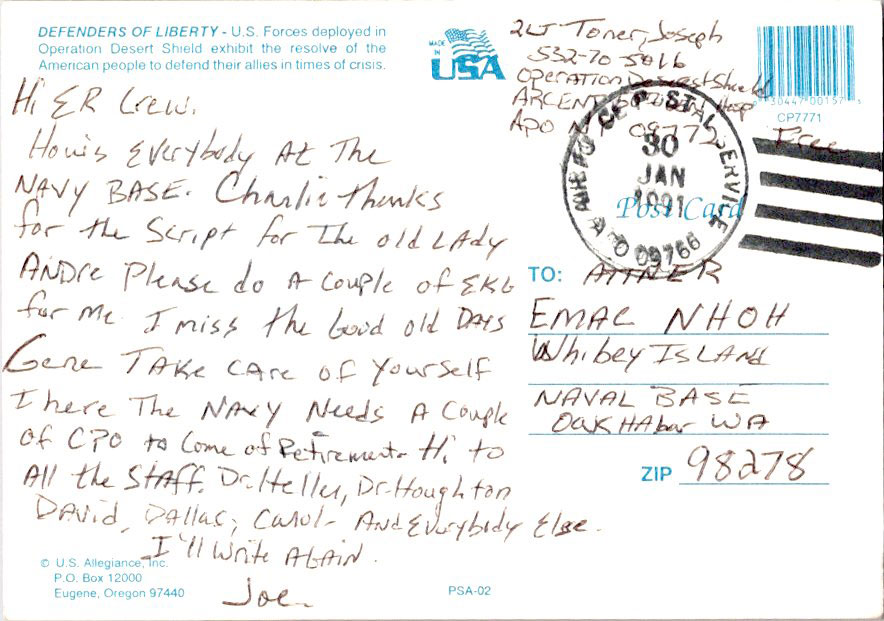 DEFENDERS OF LIBERTY - U.S. Forces deployed in
Operation Desert Shield exhibit the resolve of the
American people to defend their allies in times of crisis.
MADE IN
USA
Toner, Joseph
OPERATION Desert Shield
ARCENT Hosp
APO NY 09772
Free
30447 00157
CP7771
AIR FORCE POSTAL SERVICE
30
JAN
1991
APO 09766
Post Card
Hi ER Crew,
How is EVErybody AT The
NAVY BASE. Charlie thanks
for the Script for The old LAdy
ANDre Please do A Couple of EKG
for Me I miss the Good old DAYS
Gene TAKE CAre of Yourself
I here The NAVY Needs A Couple
of CPO to Come of Retirement Hi to
All the STAFF. Dr. Heller, Dr. Houghton
DAVID, DALLAS, Carol- And Everybody Else.
I'll Write AGAIN.
Joe
TO: ATTN ER
EMAC NHOH
Whibey ISLAND
NAVAL BASE
Oak HAbor WA
ZIP 98278
© U.S. Allegiance, Inc.
P.O. Box 12000
Eugene, Oregon 97440
PSA-02